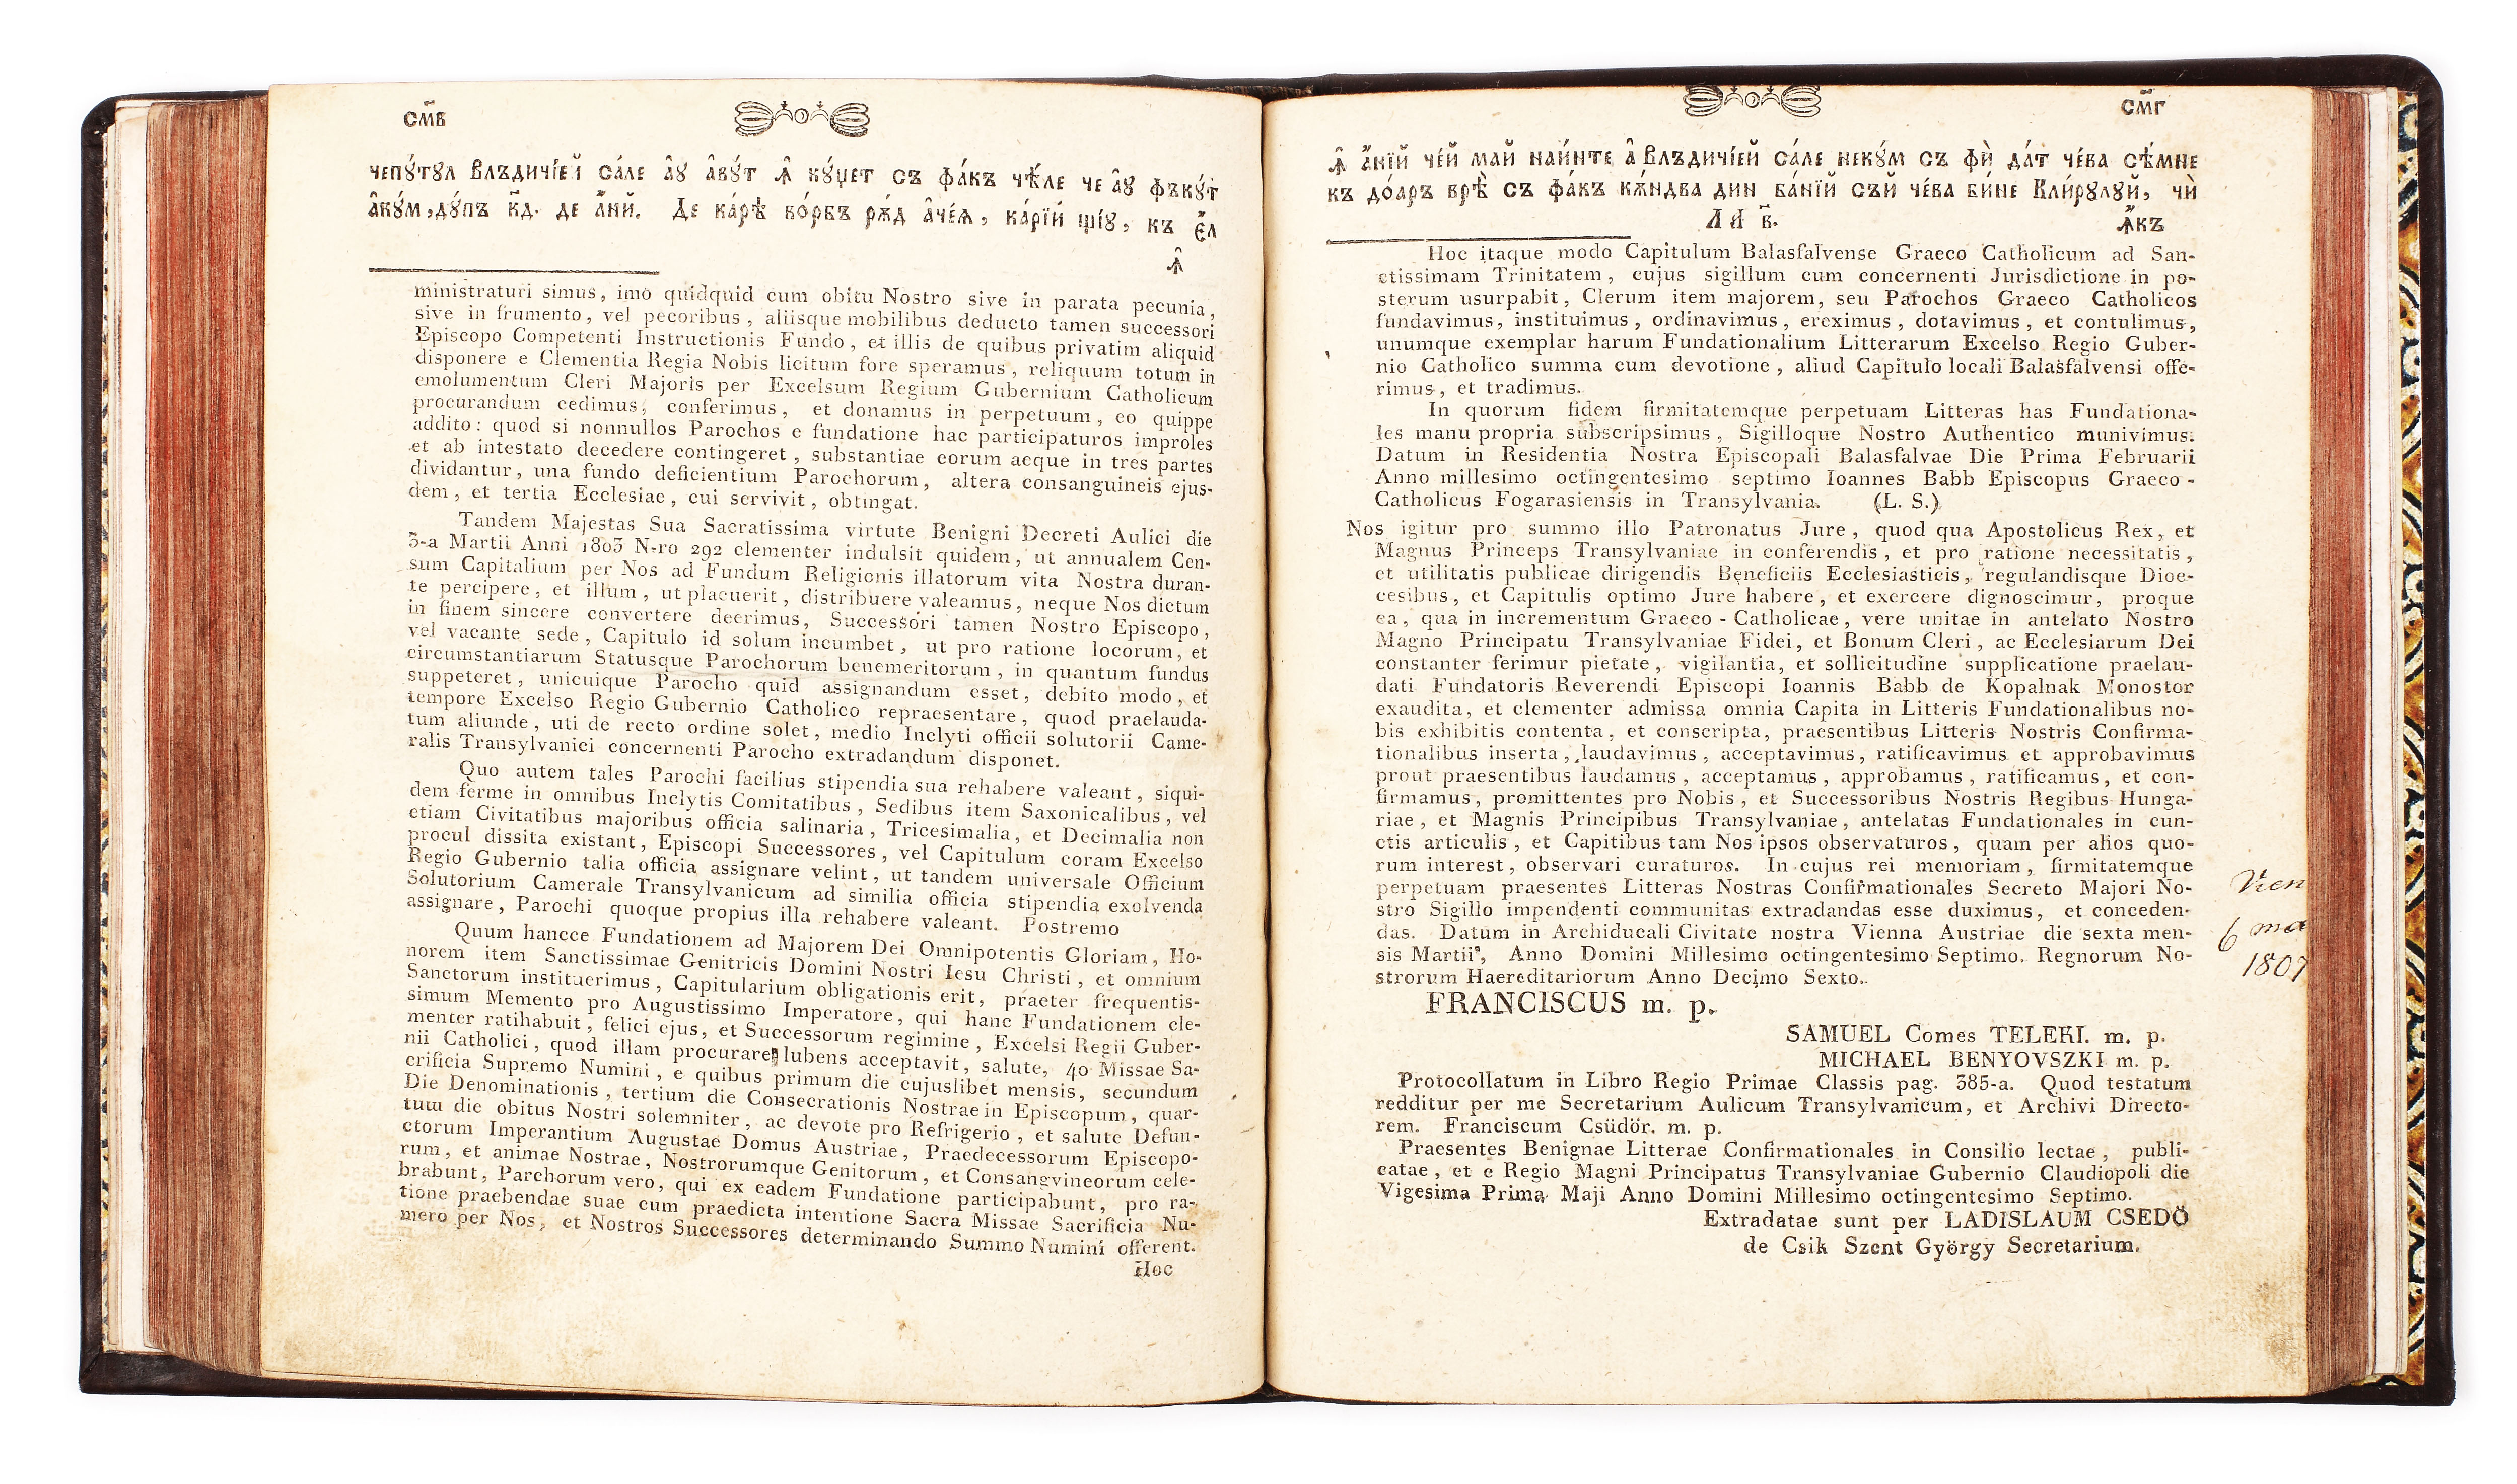 см҃в
чепꙋ́тꙋл Влъдичі́ей са́ле а҆ꙋ а҆вꙋ́т ꙟ҆ кꙋ́џет съ фа́къ чѣ́ле че а҆ꙋ фъкꙋ́т
а҆кꙋ́м, дꙋ́пъ к҃д. де а҆́ни. Де ка́рѣ во́рбъ рѫ́д а҆че́ѧ, ка́рїй щі́ꙋ, къ є҆́л
ꙟ҆
ministraturi simus, imo quidquid cum obitu Nostro sive in parata pecunia,
sive in frumento, vel pecoribus, aliisque mobilibus deducto tamen successori
Episcopo Competenti Instructionis Fundo, et illis de quibus privatim aliquid
disponere e Clementia Regia Nobis licitum fore speramus, reliquum totum in
emolumentum Cleri Majoris per Excelsum Regium Gubernium Catholicum
procurandum cedimus, conferimus, et donamus in perpetuum, eo quippe
addito: quod si nonnullos Parochos e fundatione hac participaturos improles
et ab intestato decedere contingeret, substantiae eorum aeque in tres partes
dividantur, una fundo deficientium Parochorum, altera consanguineis ejus-
dem, et tertia Ecclesiae, cui servivit, obtingat.
Tandem Majestas Sua Sacratissima virtute Benigni Decreti Aulici die
3-a Martii Anni 1803 N-ro 292 clementer indulsit quidem, ut annualem Cen-
sum Capitalium per Nos ad Fundum Religionis illatorum vita Nostra duran-
te percipere, et illum, ut placuerit, distribuere valeamus, neque Nos dictum
in finem sincere convertere deerimus, Successori tamen Nostro Episcopo,
vel vacante sede, Capitulo id solum incumbet, ut pro ratione locorum, et
circumstantiarum Statusque Parochorum benemeritorum, in quantum fundus
suppeteret, unicuique Parocho quid assignandum esset, debito modo, et
tempore Excelso Regio Gubernio Catholico repraesentare, quod praelauda-
tum aliunde, uti de recto ordine solet, medio Inclyti officii solutorii Came-
ralis Transylvanici concernenti Parocho extradandum disponet.
Quo autem tales Parochi facilius stipendia sua rehabere valeant, siqui-
dem ferme in omnibus Inclytis Comitatibus, Sedibus item Saxonicalibus, vel
etiam Civitatibus majoribus officia salinaria, Tricesimalia, et Decimalia non
procul dissita existant, Episcopi Successores, vel Capitulum coram Excelso
Regio Gubernio talia officia assignare velint, ut tandem universale Officium
Solutorium Camerale Transylvanicum ad similia officia stipendia exolvenda
assignare, Parochi quoque propius illa rehabere valeant. Postremo
Quum hancce Fundationem ad Majorem Dei Omnipotentis Gloriam, Ho-
norem item Sanctissimae Genitricis Domini Nostri Iesu Christi, et omnium
Sanctorum instituerimus, Capitularium obligationis erit, praeter frequentis-
simum Memento pro Augustissimo Imperatore, qui hanc Fundationem cle-
menter ratihabuit, felici ejus, et Successorum regimine, Excelsi Regii Guber-
nii Catholici, quod illam procurare lubens acceptavit, salute, 40 Missae Sa-
crificia Supremo Numini, e quibus primum die cujuslibet mensis, secundum
Die Denominationis, tertium die Consecrationis Nostrae in Episcopum, quar-
tum die obitus Nostri solemniter, ac devote pro Refrigerio, et salute Defun-
ctorum Imperantium Augustae Domus Austriae, Praedecessorum Episcopo-
rum, et animae Nostrae, Nostrorumque Genitorum, et Consangvineorum cele-
brabunt, Parchorum vero, qui ex eadem Fundatione participabunt, pro ra-
tione praebendae suae cum praedicta intentione Sacra Missae Sacrificia Nu-
mero per Nos, et Nostros Successores determinando Summo Numini offerent.
Hoc
см҃г
ꙟ҆ а҆́нїй че́й май наи́нте а҆ Влъдичі́ей са́ле некꙋ́м съ фѝ да́т че́ва сѣ́мне
къ до́аръ врѣ̀ съ фа́къ кѫ́ндва дин ба́нїй съй че́ва би́не Кли́рꙋлꙋй, чѝ
Л л в҃.
ꙟ҆́къ
Hoc itaque modo Capitulum Balasfalvense Graeco Catholicum ad San-
ctissimam Trinitatem, cujus sigillum cum concernenti Jurisdictione in po-
sterum usurpabit, Clerum item majorem, seu Parochos Graeco Catholicos
fundavimus, instituimus, ordinavimus, ereximus, dotavimus, et contulimus,
unumque exemplar harum Fundationalium Litterarum Excelso Regio Guber-
nio Catholico summa cum devotione, aliud Capitulo locali Balasfalvensi offe-
rimus, et tradimus.
In quorum fidem firmitatemque perpetuam Litteras has Fundationa-
les manu propria subscripsimus, Sigilloque Nostro Authentico munivimus.
Datum in Residentia Nostra Episcopali Balasfalvae Die Prima Februarii
Anno millesimo octingentesimo septimo Ioannes Babb Episcopus Graeco-
Catholicus Fogarasiensis in Transylvania. (L. S.)
Nos igitur pro summo illo Patronatus Jure, quod qua Apostolicus Rex, et
Magnus Princeps Transylvaniae in conferendis, et pro ratione necessitatis,
et utilitatis publicae dirigendis Beneficiis Ecclesiasticis, regulandisque Dioe-
cesibus, et Capitulis optimo Jure habere, et exercere dignoscimur, proque
ea, qua in incrementum Graeco-Catholicae, vere unitae in antelato Nostro
Magno Principatu Transylvaniae Fidei, et Bonum Cleri, ac Ecclesiarum Dei
constanter ferimur pietate, vigilantia, et sollicitudine supplicatione praelau-
dati Fundatoris Reverendi Episcopi Ioannis Babb de Kopalnak Monostor
exaudita, et clementer admissa omnia Capita in Litteris Fundationalibus no-
bis exhibitis contenta, et conscripta, praesentibus Litteris Nostris Confirma-
tionalibus inserta, laudavimus, acceptavimus, ratificavimus et approbavimus
prout praesentibus laudamus, acceptamus, approbamus, ratificamus, et con-
firmamus, promittentes pro Nobis, et Successoribus Nostris Regibus Hunga-
riae, et Magnis Principibus Transylvaniae, antelatas Fundationales in cun-
ctis articulis, et Capitibus tam Nos ipsos observaturos, quam per alios quo-
rum interest, observari curaturos. In cujus rei memoriam, firmitatemque
perpetuam praesentes Litteras Nostras Confirmationales Secreto Majori No-
stro Sigillo impendenti communitas extradandas esse duximus, et conceden-
das. Datum in Archiducali Civitate nostra Vienna Austriae die sexta men-
sis Martii, Anno Domini Millesimo octingentesimo Septimo. Regnorum No-
strorum Haereditariorum Anno Decimo Sexto.
Vien
6 ma
1807
FRANCISCUS m. p.
SAMUEL Comes TELEKI. m. p.
MICHAEL BENYOVSZKI m. p.
Protocollatum in Libro Regio Primae Classis pag. 385-a. Quod testatum
redditur per me Secretarium Aulicum Transylvanicum, et Archivi Directo-
rem. Franciscum Csüdör. m. p.
Praesentes Benignae Litterae Confirmationales in Consilio lectae, publi-
catae, et e Regio Magni Principatus Transylvaniae Gubernio Claudiopoli die
Vigesima Prima Maji Anno Domini Millesimo octingentesimo Septimo.
Extradatae sunt per LADISLAUM CSEDÖ
de Csik Szent György Secretarium.